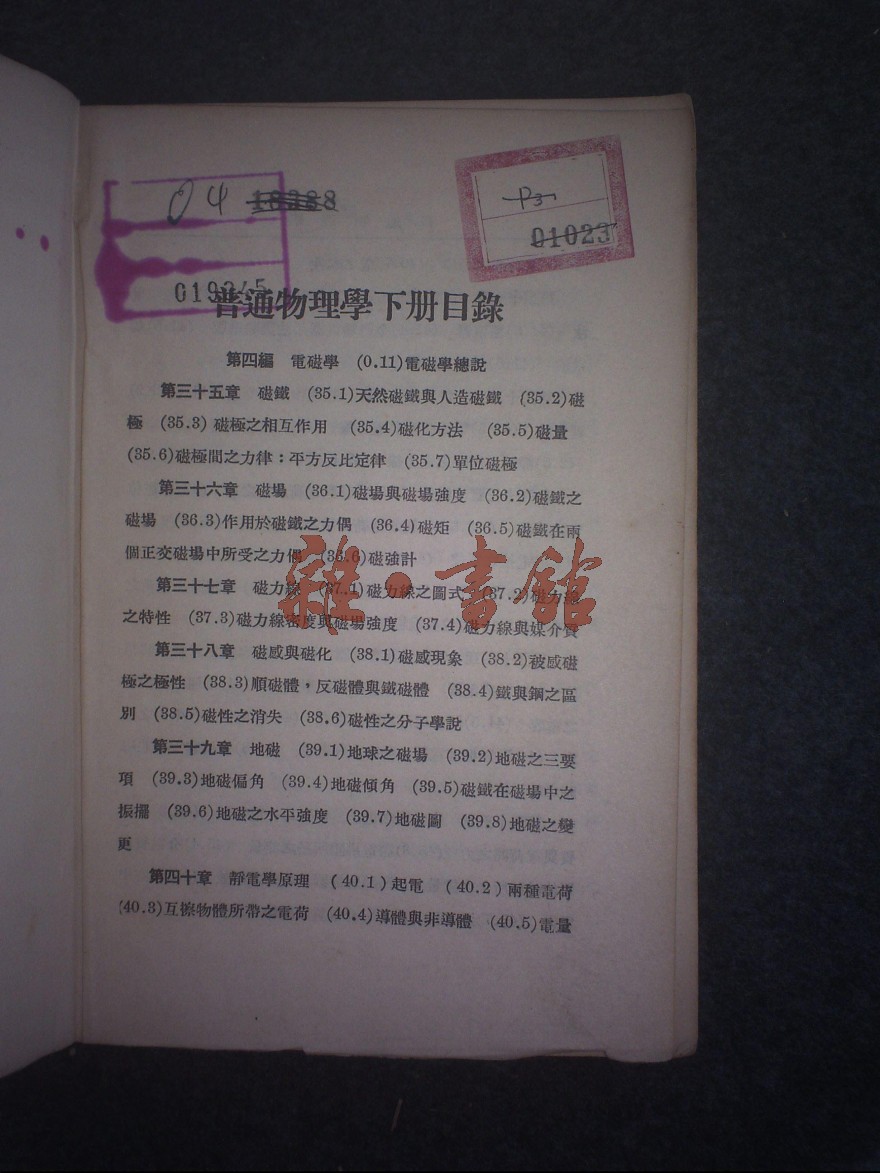 04 18388
P31
01023
019245
普通物理學下册目錄
第四編 電磁學 (0.11)電磁學總說
第三十五章 磁鐵 (35.1)天然磁鐵與人造磁鐵 (35.2)磁
極 (35.3) 磁極之相互作用 (35.4)磁化方法 (35.5)磁量
(35.6)磁極間之力律：平方反比定律 (35.7)單位磁極
第三十六章 磁場 (36.1)磁場與磁場強度 (36.2)磁鐵之
磁場 (36.3)作用於磁鐵之力偶 (36.4)磁矩 (36.5)磁鐵在兩
個正交磁場中所受之力偶 (36.6)磁強計
第三十七章 磁力線 (37.1)磁力線之圖式 (37.2)磁力線
之特性 (37.3)磁力線密度與磁場強度 (37.4)磁力線與媒介質
雜·書館
第三十八章 磁感與磁化 (38.1)磁感現象 (38.2)被感磁
極之極性 (38.3)順磁體，反磁體與鐵磁體 (38.4)鐵與鋼之區
別 (38.5)磁性之消失 (38.6)磁性之分子學說
第三十九章 地磁 (39.1)地球之磁場 (39.2)地磁之三要
項 (39.3)地磁偏角 (39.4)地磁傾角 (39.5)磁鐵在磁場中之
振擺 (39.6)地磁之水平強度 (39.7)地磁圖 (39.8)地磁之變
更
第四十章 靜電學原理 (40.1)起電 (40.2)兩種電荷
(40.3)互擦物體所帶之電荷 (40.4)導體與非導體 (40.5)電量